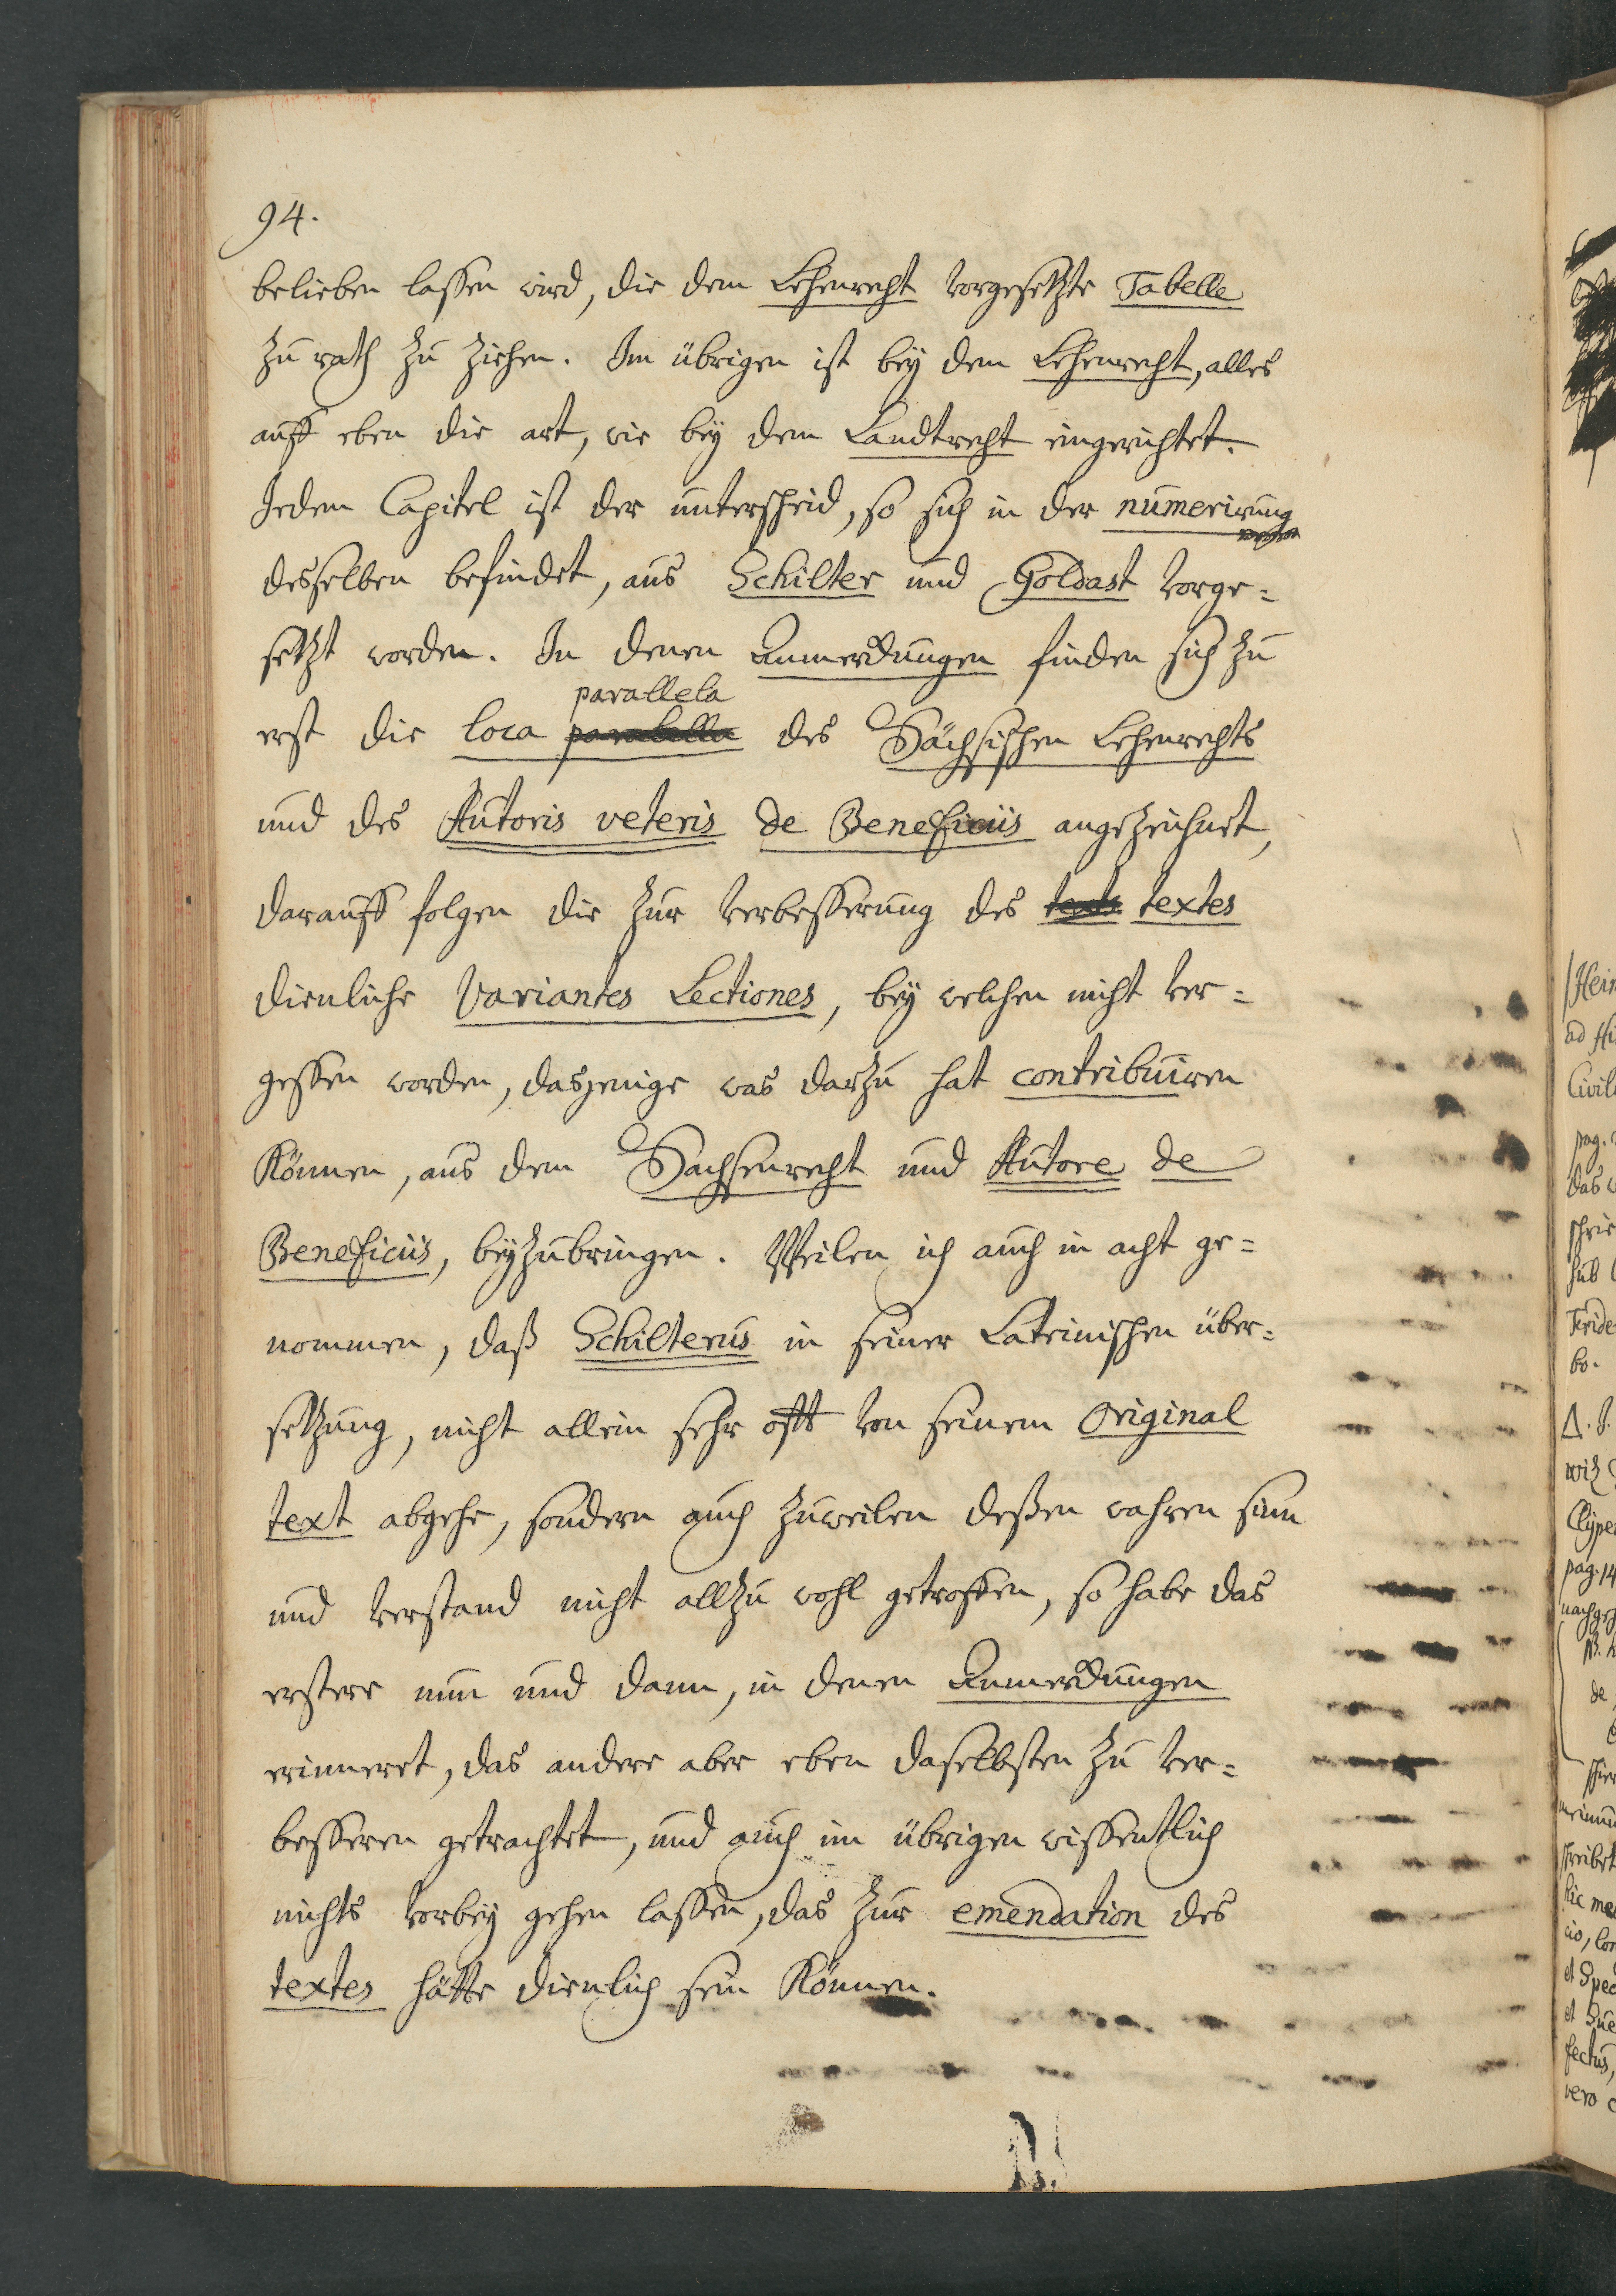 94.
belieben lassen wird, die dem Lehenrecht vorgesetzte Tabelle
zu rath zu ziehen. Im übrigen ist beÿ dem Lehenrecht, alles
auff eben die art, wie beÿ dem Landtrecht eingerichtet.
Jedem Capitel ist der unterscheid, so sich in der numerirung
desselben befindet, aus Schilter und Goldast vorge=
setzt worden. In denen Anmerckungen finden sich zu
parallela
erst die loca parabella des Sächsischen Lehenrechts
und des Autoris veteris de Beneficiis angezeichnet,
darauff folgen die zur verbesserung des texts textes
dienliche Variantes Lectiones, beÿ welchen nicht ver=
gessen worden, dasjenige was darzu hat contribuiren
können, aus dem Sachsenrecht und Autore de
Beneficiis, beÿzubringen. Weilen ich auch in acht ge=
nommen, daß Schilterus in seiner Lateinischen über=
setzung, nicht allein sehr offt von seinem Original
text abgehe, sondern auch zuweilen deßen wahren sinn
und verstand nicht allzu wohl getroffen, so habe das
erstere nun und dann, in denen Anmerckungen
erinneret, das andere aber eben daselbsten zu ver=
besseren getrachtet, und auch im übrigen wissentlich
nichts vorbeÿ gehen lassen, das zur emendation des
textes hätte dienlich sein können.